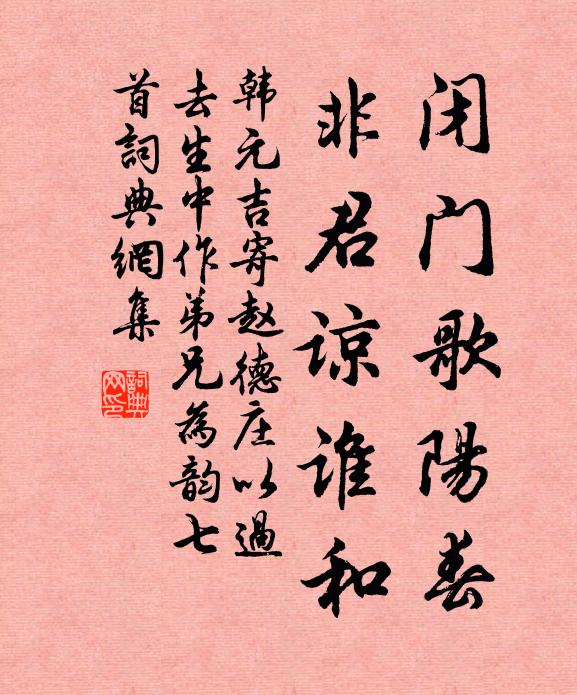 闭门歌陽春
非君谅谁和
韩元吉寄赵德庄以過
去生中作弟兄為韵七
首詞典網集
詞典
网印